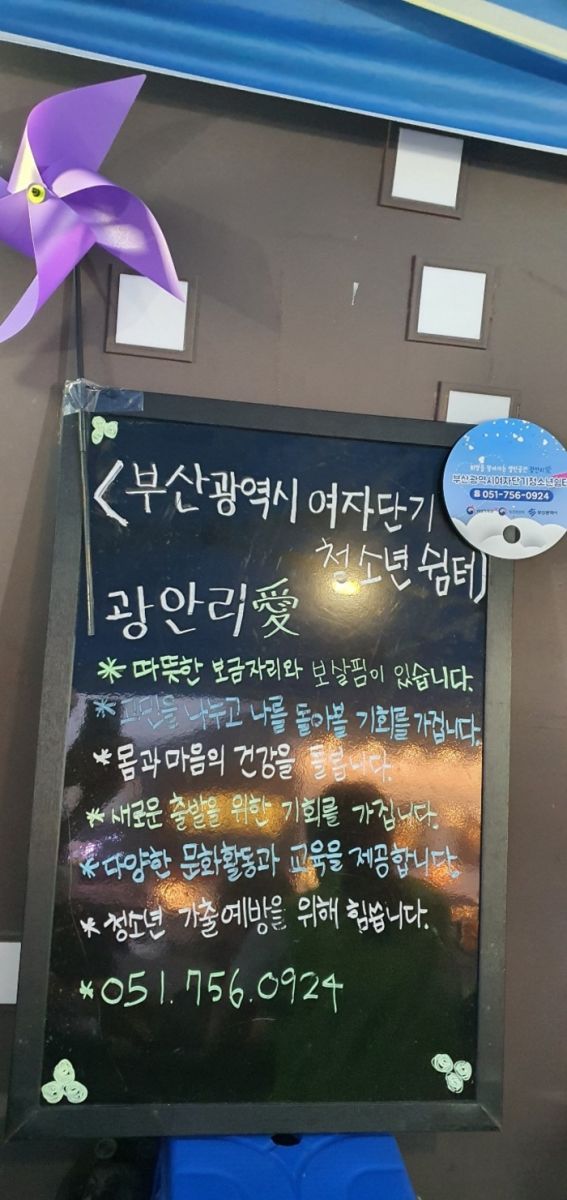 <부산광역시 여자단기
청소년 쉼터>
광안리愛
* 따뜻한 보금자리와 보살핌이 있습니다.
* 고민을 나누고 나를 돌아볼 기회를 가집니다.
* 몸과 마음의 건강을 돌봅니다.
* 새로운 출발을 위한 기회를 가집니다.
* 다양한 문화활동과 교육을 제공합니다.
* 청소년 가출예방을 위해 힘씁니다.
* 051.756.0924
부산광역시여자단기청소년쉼터
051-756-0924
부산광역시